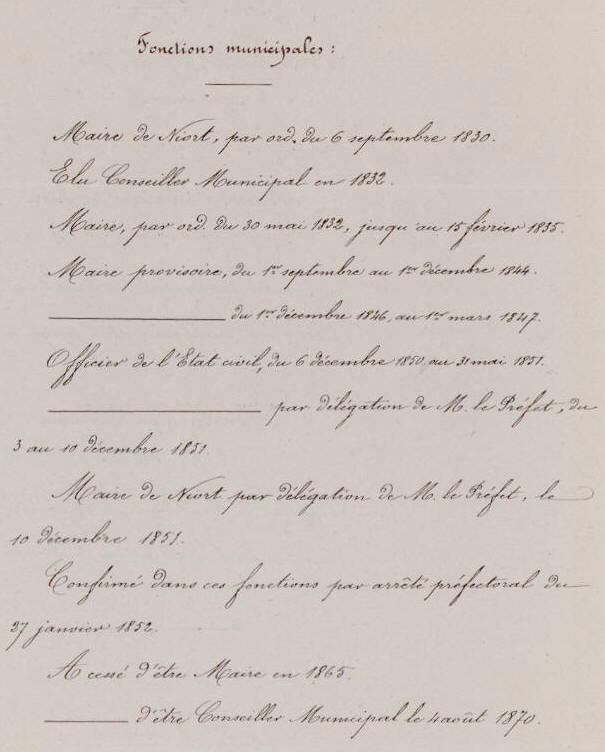 Fonctions municipales :
Maire de Niort, par ord. du 6 septembre 1830.
Elu Conseiller Municipal en 1832.
Maire, par ord. du 30 mai 1832, jusqu'au 15 février 1835.
Maire provisoire, du 1er septembre au 1er décembre 1844.
du 1er décembre 1846, au 1er mars 1847.
Officier de l'Etat civil, du 6 décembre 1850, au 31 mai 1851.
par délégation de M. le Préfet, du
3 au 10 décembre 1851.
Maire de Niort par délégation de M. le Préfet, le
10 décembre 1851.
Confirmé dans ces fonctions par arrêté préfectoral du
27 janvier 1852.
A cessé d'être Maire en 1865.
d'être Conseiller Municipal le 4 août 1870.